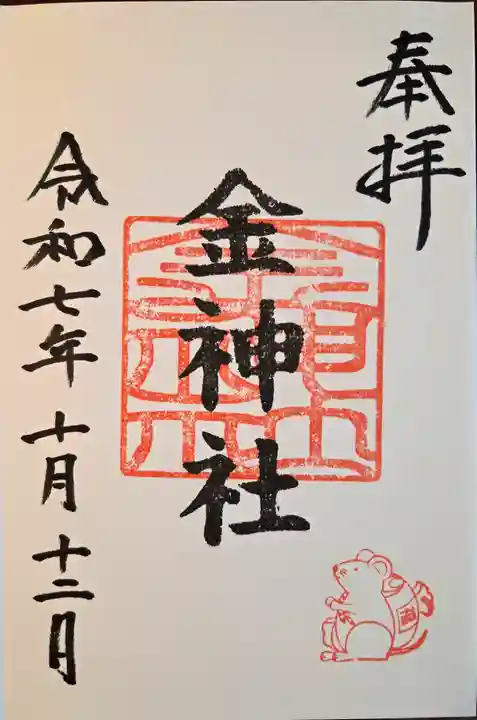 奉拝
金神社
令和七年十月十二日